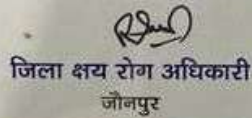 जिला क्षय रोग अधिकारी
जौनपुर